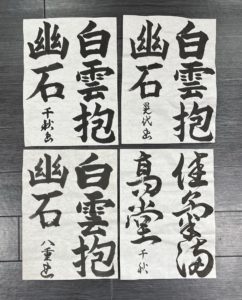 白雲抱
幽石
千秋書
白雲抱
幽石
白雲抱
幽石
八重書
佳氣満
高堂
千秋